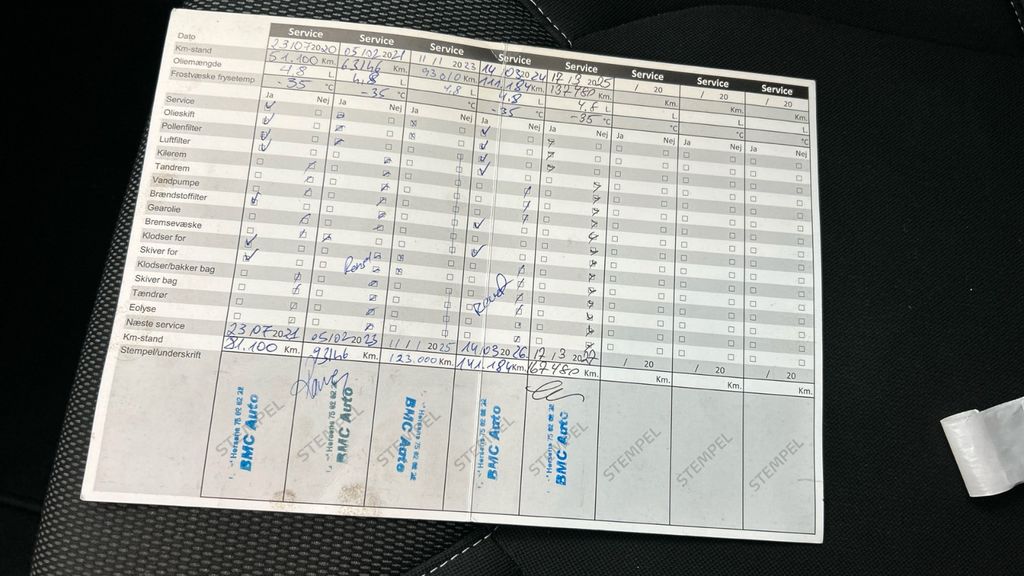 Service Service Service Service Service Service Service Service
Dato 23/07 2020 05/02 2021 11 11 2023 14 03 2024 12 13 2025 / 20 / 20 / 20
Km-stand 51.100 Km. 63146 Km. 93010 Km. 111.184 Km. 137480 Km. Km. Km. Km.
Oliemængde 4,8 L 4.8 L 4,8 L 4,8 L 4,8 L L L L
Frostvæske frysetemp -35 °C -35 °C °C -35 °C -35 °C °C °C °C
Ja Nej Ja Nej Ja Nej Ja Nej Ja Nej Ja Nej Ja Nej Ja Nej
Service
Olieskift
Pollenfilter
Luftfilter
Kilerem
Tandrem
Vandpumpe
Brændstoffilter
Gearolie
Bremsevæske
Klodser for
Skiver for
Klodser/bakker bag
Skiver bag
Tændrør
Eolyse
Næste service 23.07 2021 05/02 2023 11/11 2025 14.03 2026 12 13 / 20 / 20 / 20
Km-stand 81.100 Km. 93146 Km. 123.000 Km. 141.184 Km. 67480 Km. Km. Km. Km.
Stempel/underskrift
STEMPEL STEMPEL STEMPEL STEMPEL STEMPEL STEMPEL STEMPEL STEMPEL
BMC Auto BMC Auto BMC Auto BMC Auto BMC Auto